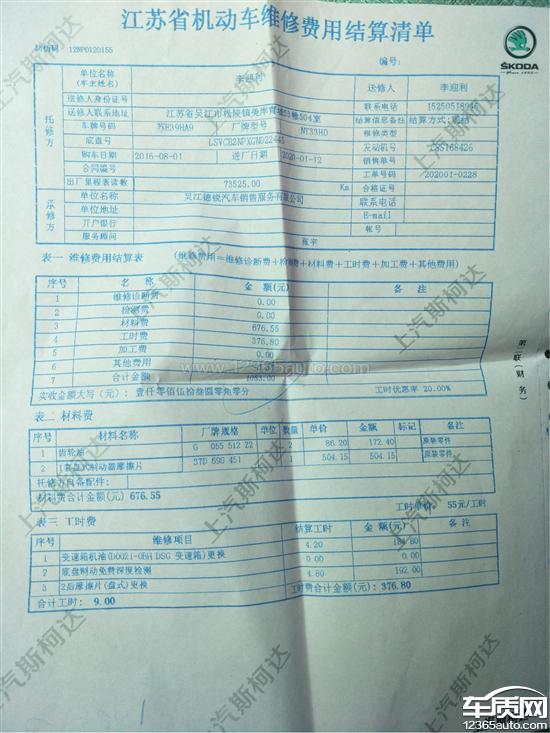 江苏省机动车维修费用结算清单
防伪码 12NP0120155
编号：
ŠKODA
托修方
单位名称(车主姓名) 李迎利 送修人 李迎利
送修人身份证号 联系电话
送修人联系地址 结算信息备注 结算方式：现结
车牌号码 厂牌型号 NT33HD 维修类型
底盘号 发动机号
购车日期 2016-08-01 送厂日期 2020-01-12 销售单号
合同编号 工单号 202001-0228
出厂里程表读数 73525.00 Km 合格证号
承修方
单位名称 吴江德锐汽车销售服务有限公司 联系电话
单位地址 E-mail
开户银行 帐号
服务顾问 张宇
表一 维修费用结算表 (维修费用=维修诊断费+检测费+材料费+工时费+加工费+其他费用)
序号 名 称 金 额(元) 备 注
1 维修诊断费 0.00
2 检测费 0.00
3 材料费 676.55
4 工时费 376.80
5 加工费 0.00
6 其他费用 0.00
7 合计金额
实收金额大写(元)：壹仟零佰伍拾叁圆零角零分 工时优惠率 20.00%
表二 材料费
序号 材料名称 厂牌规格 单位 数量 单价 金额 标记 备注
1 齿轮油 G 055 512 Z2 2 86.20 172.40 原装零件
2 1套盘式制动器摩擦片 37D 698 451 1 504.15 504.15 原装零件
托修方自备配件：
材料费合计金额(元) 676.55 工时单价： 55元/工时
表三 工时费
序号 维修项目 结算工时 金 额(元) 备注
1 变速箱机油(D0021-0BH DSG 变速箱)更换 4.20 184.80
2 底盘制动免费深度检测 0.00 0.00
3 2后摩擦片(盘式)更换 4.80 192.00
合计工时： 9.00 工时费合计金额(元)：376.80
第二联(财务)
上汽斯柯达
www.12365auto.com
车质网
12365auto.com